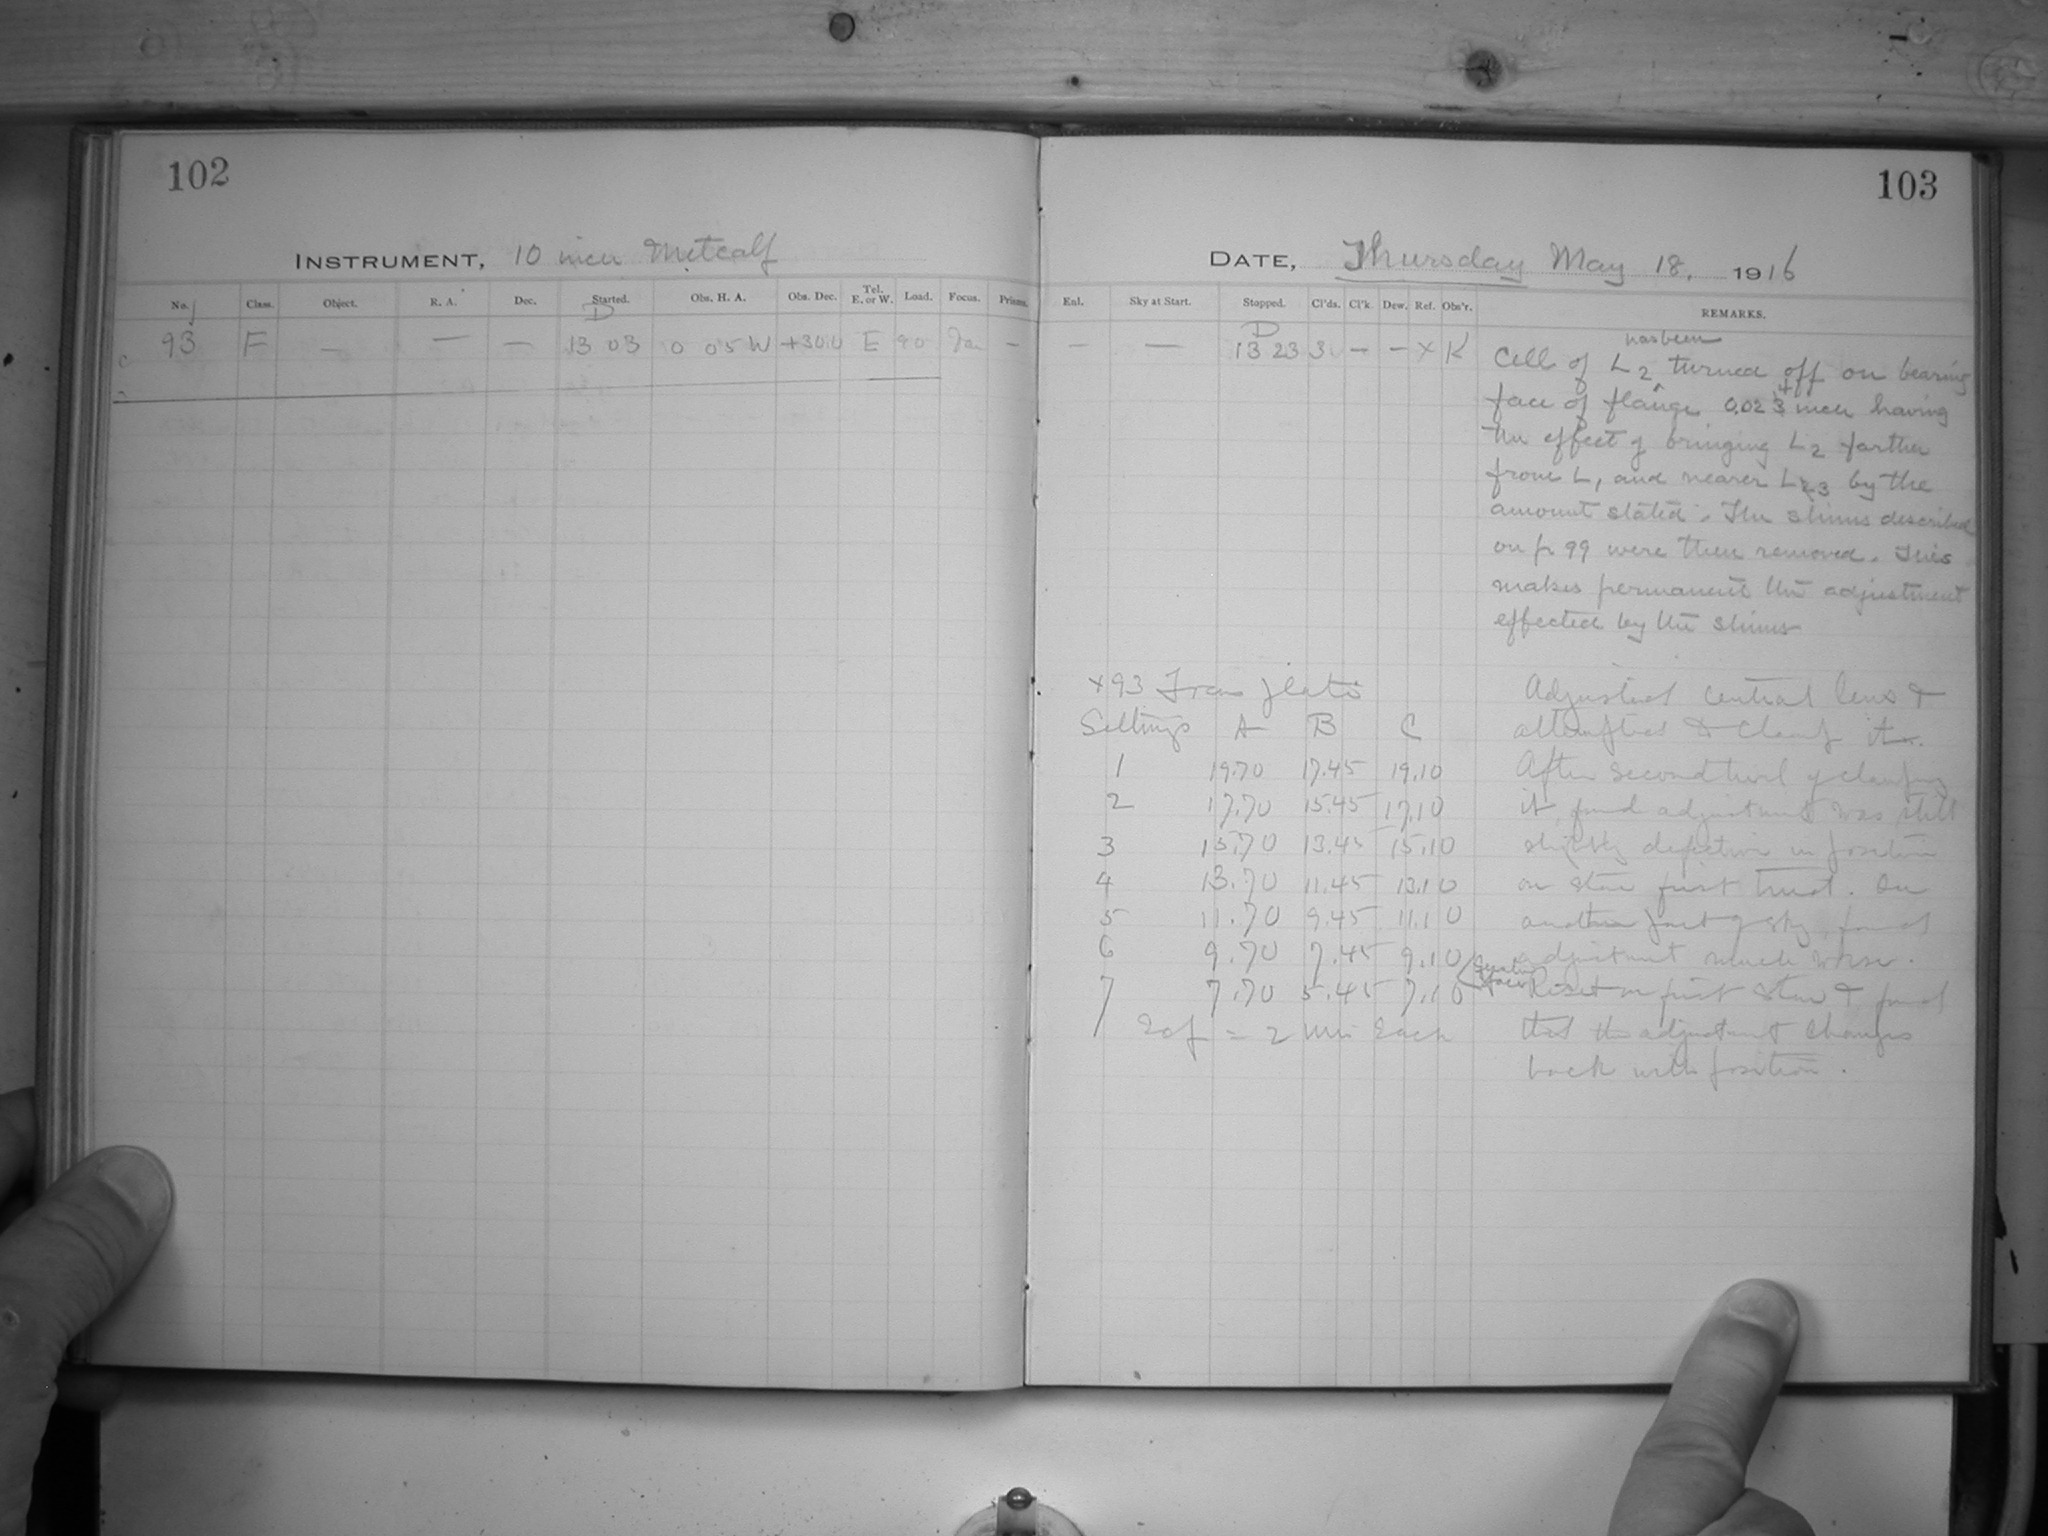 102
INSTRUMENT, 10 inch Metcalf
No. Class. Object. R. A. Dec. Started. Obs. H. A. Obs. Dec. Tel. E. or W. Load. Focus. Prisms.
D
93 F — — — 13 03 0 05 W +30.0 E 90 —
103
DATE, Thursday May 18, 1916
Enl. Sky at Start. Stopped. Cl'ds. Cl'k. Dew. Ref. Obs'r. REMARKS.
D
— — 13 23 3 — — × K
has been
Cell of L2 ^ turned off on bearing
face of flange 0.023 inch having
the effect of bringing L2 farther
from L1 and nearer L3 by the
amount stated. The shims described
on p 99 were then removed. This
makes permanent the adjustment
effected by the shims
×93 Focus plate
Settings A B C
1 19.70 17.45 19.10
2 17.70 15.45 17.10
3 15.70 13.45 15.10
4 13.70 11.45 13.10
5 11.70 9.45 11.10
6 9.70 7.45 9.10
7 7.70 5.45 7.10
= 2 min Each
Adjusted central lens &
attempted to clamp it.
After second trial of clamping
it, found adjustment was still
slightly defective in position
on star first tried. On
another part of sky, found
adjustment much worse.
Reset on first star & found
that the adjustment changes
back with position.